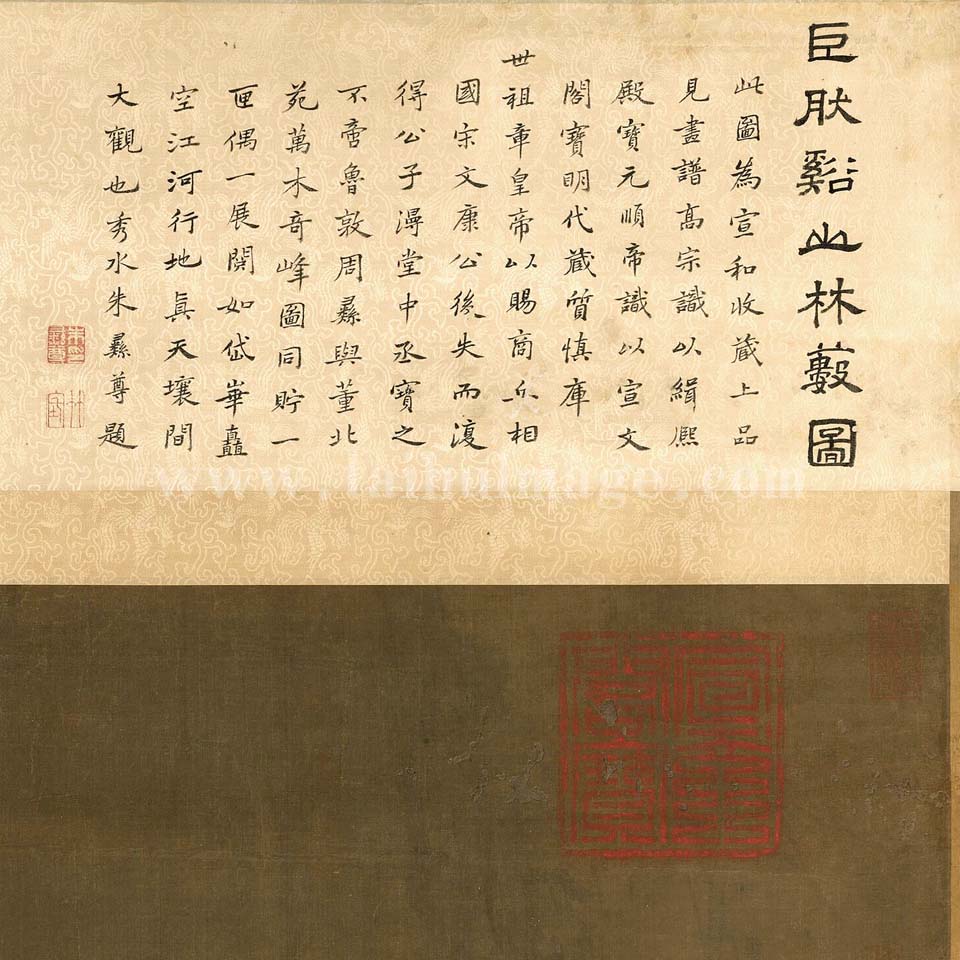 巨肰谿山林藪圖
此圖為宣和收藏上品
見畫譜高宗識以緝熙
殿寶元順帝識以宣文
閣寶明代藏質慎庫
世祖章皇帝以賜商丘相
國宋文康公後失而復
得公子漫堂中丞寶之
不啻魯敦周彞與董北
苑萬木奇峰圖同貯一
匣偶一展開如岱崋矗
空江河行地真天壤間
大觀也秀水朱彞尊題